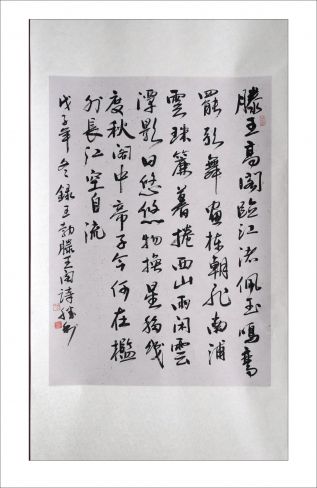 滕王高閣臨江渚佩玉鳴鸞
罷歌舞畫棟朝飛南浦
雲珠簾暮捲西山雨閑雲
潭影日悠悠物換星移幾
度秋閣中帝子今何在檻
外長江空自流
戊子年冬錄王勃滕王閣詩